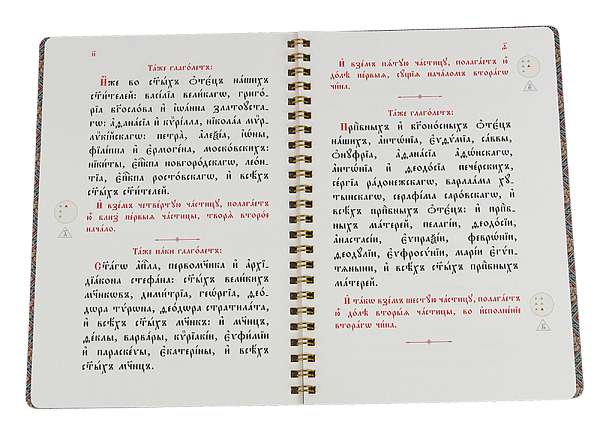 и҃
Та́же глаго́летъ:
И҆̀же во ст҃ы́хъ ѻ҆тє́цъ на́шихъ
ст҃и́телей: васі́лїа вели́кагѡ, григо́-
рїа бг҃осло́ва и҆ і҆ѡа́нна златоꙋ́ста-
гѡ: а҆ѳана́сїа и҆ кѷрі́лла, нїкола́а мѵр-
лѷкі́йскагѡ: петра̀, а҆леѯі́а, і҆ѡ́ны,
фїлі́ппа и҆ є҆рмоге́на, моско́вскихъ:
ники́ты, є҆пⷭ҇кпа новгоро́дскагѡ, леѡ́н-
тїа, є҆пⷭ҇кпа росто́вскагѡ, и҆ всѣ́хъ
ст҃ы́хъ ст҃и́телей.
И҆ взе́мъ четве́ртꙋю части́цꙋ, полага́етъ
ю҆̀ бли́з̾ пе́рвыѧ части́цы, творѧ̀ второ́е
нача́ло.
Та́же па́ки глаго́летъ:
Ст҃а́гѡ а҆пⷭ҇ла, первомч҃ника и҆ а҆рхї-
дїа́кона стефа́на: ст҃ы́хъ вели́кихъ
мч҃никѡвъ, дими́трїа, геѡ́ргїа, ѳео́-
дѡра тѵ́рѡна, ѳео́дѡра стратила́та,
и҆ всѣ́хъ ст҃ы́хъ мч҃нкъ: и҆ мч҃ницъ,
ѳе́клы, варва́ры, кѷрїакі́и, є҆ѵфи́мїи
и҆ параске́ѵы, є҆катери́ны, и҆ всѣ́хъ
ст҃ы́хъ мч҃ницъ.
И҆ взе́мъ пѧ́тꙋю части́цꙋ, полага́етъ ю҆̀
до́лѣ пе́рвыѧ, сꙋ́щїѧ нача́ломъ втора́гѡ
чи́на.
Та́же глаго́летъ:
Прпⷣбныхъ и҆ бг҃оно́сныхъ ѻ҆тє́цъ
на́шихъ, а҆нтѡ́нїа, є҆ѵѳѵ́мїа, са́ввы,
ѻ҆нꙋ́фрїа, а҆ѳана́сїа а҆ѳѡ́нскагѡ,
а҆нтѡ́нїа и҆ ѳеодо́сїа пече́рскихъ,
се́ргїа ра́донежскагѡ, варлаа́ма хꙋ-
ты́нскагѡ, серафі́ма саро́вскагѡ, и҆
всѣ́хъ прпⷣбныхъ ѻ҆тє́цъ: и҆ прпⷣб-
ныхъ ма́терей, пелагі́и, ѳеодо́сїи,
а҆настасі́и, є҆ѵпраѯі́и, феврѡ́нїи,
ѳеодꙋ́лїи, є҆ѵфросѵ́нїи, марі́и є҆гѵ́п-
тѧныни, и҆ всѣ́хъ ст҃ы́хъ прпⷣбныхъ
ма́терей.
И҆ та́кѡ взе́мъ шестꙋ́ю части́цꙋ, полага́етъ
ю҆̀ до́лѣ вторы́ѧ части́цы, во и҆сполне́нїе
втора́гѡ чи́на.